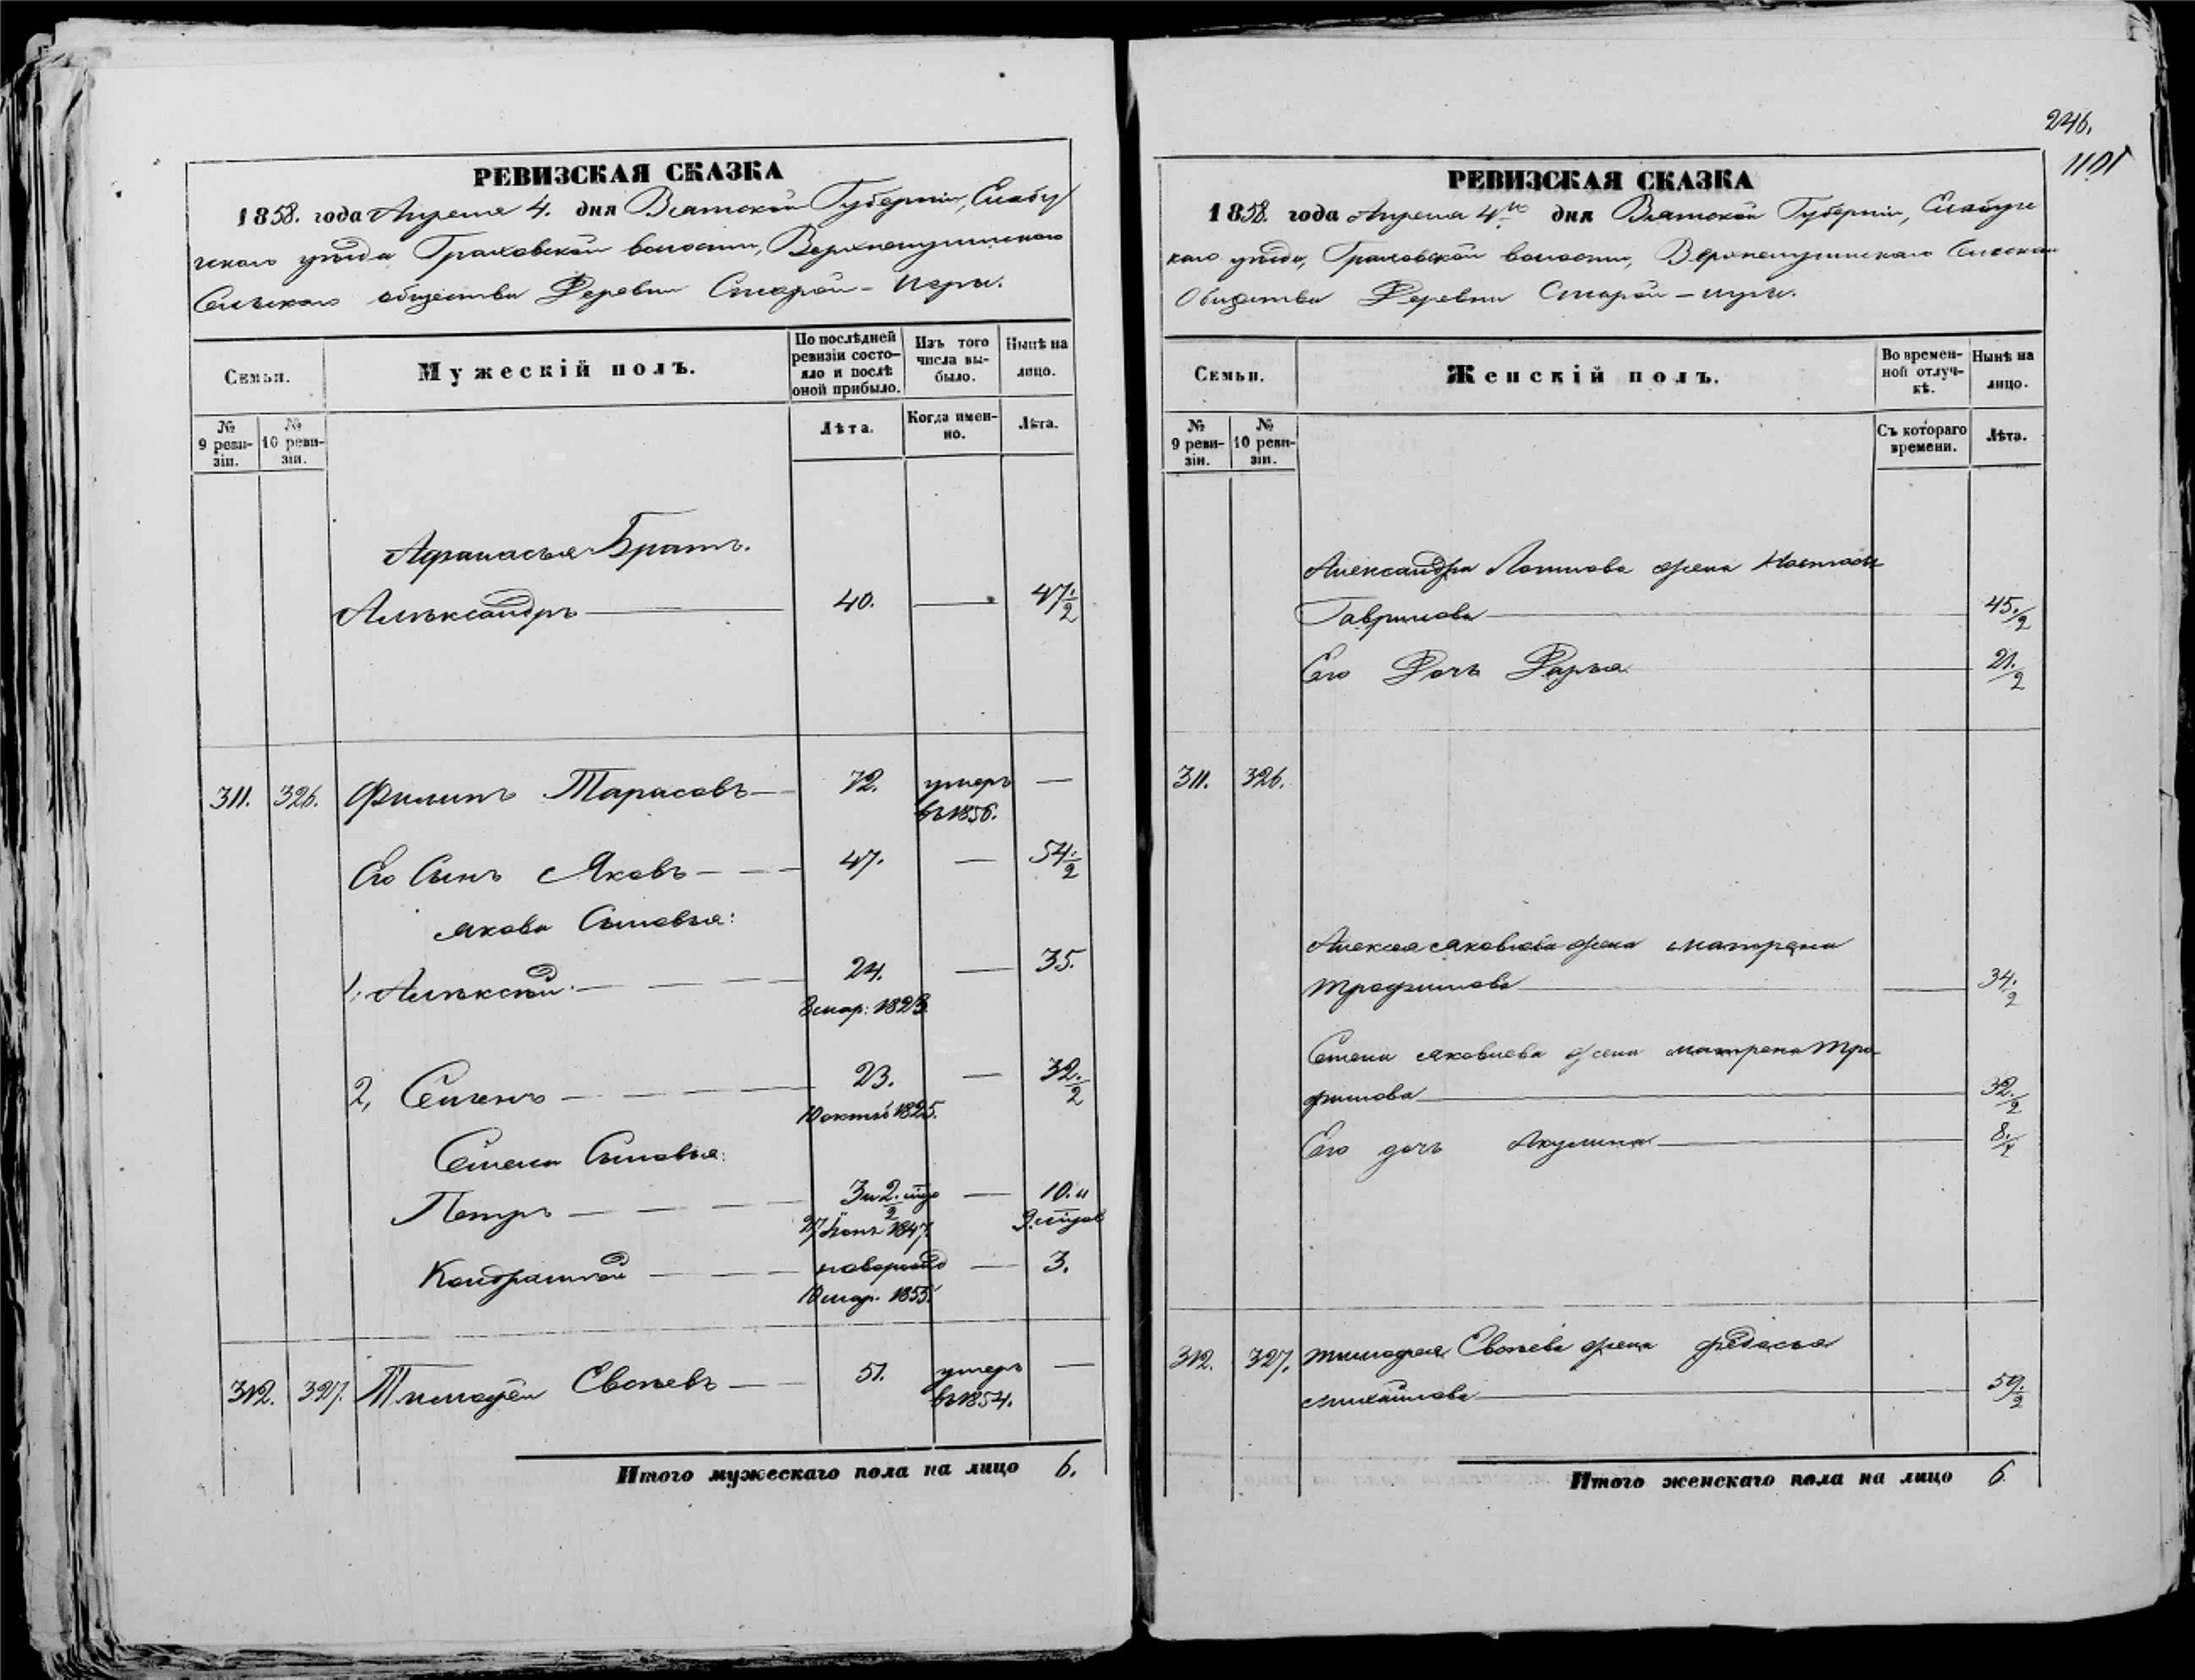 РЕВИЗСКАЯ СКАЗКА
1858. года Апреля 4. дня Вятской Губерніи, Елабу
гскаго уѣзда Граховской волости, Верхне
Сельскаго общества Деревни Старой-Игры.
Семьи.
Мужескій полъ.
По послѣдней ревизіи состояло и послѣ оной прибыло.
Изъ того числа выбыло.
Нынѣ на лицо.
№ 9 ревизіи.
№ 10 ревизіи.
Лѣта.
Когда именно.
Лѣта.
Афанасья Братъ.
Алѣксандръ — 40. — 47.½
311. 326. Филипъ Тарасовъ — 72. умеръ —
въ 1856.
Его Сынъ Яковъ — 47. — 54.½
Якова Сыновья:
1. Алѣксѣй — 24. — 35.
8 мар: 1823.
2, Семенъ — 23. — 32.½
10 октяб 1825.
Семена Сыновья:
Петръ — 3 и 2. — 10. и
27 Іюня 1847. 9.
Кондратей — новорожд — 3.
10 мар. 1855.
312. 327. Тимофей Евсѣевъ — 51. умеръ —
въ 1854.
Итого мужескаго пола на лицо 6.
246.
1101
РЕВИЗСКАЯ СКАЗКА
1858. года Апреля 4го дня Вятской Губерніи, Елабугс
каго уѣзда, Граховской волости, Сельскаго
Общества Деревни Старой-Игры.
Семьи.
Женскій полъ.
Во временной отлучкѣ.
Нынѣ на лицо.
№ 9 ревизіи.
№ 10 ревизіи.
Съ котораго времени.
Лѣта.
Александра жена Настасья
Гаврилова — 45.½
Его Дочь Дарья — 21.½
311. 326.
Алексея Яковлева жена Матрена
Трофимова — 34.½
Семена Яковлева жена Матрена Тро
фимова — 32.½
Его дочь Акулина — 8.
312. 327. Тимофея Евсѣева жена Федосья
Михайлова — 59.½
Итого женскаго пола на лицо 6